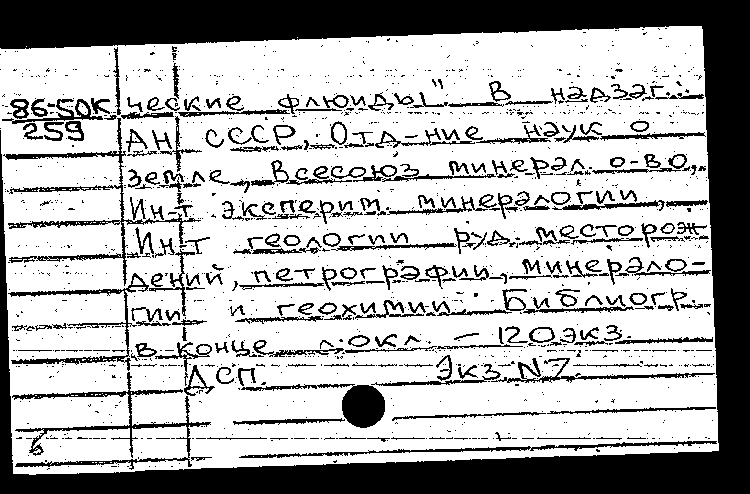 86-50К ческие флюиды". В надзаг.:
259 АН СССР, Отд-ние наук о
Земле, Всесоюз. минерал. о-во,
Ин-т эксперим. минералогии,
Ин-т геологии руд. месторож
дений, петрографии, минерало-
гии и геохимии. Библиогр.
в конце докл. — 120экз.
ДСП. Экз. N7.
б